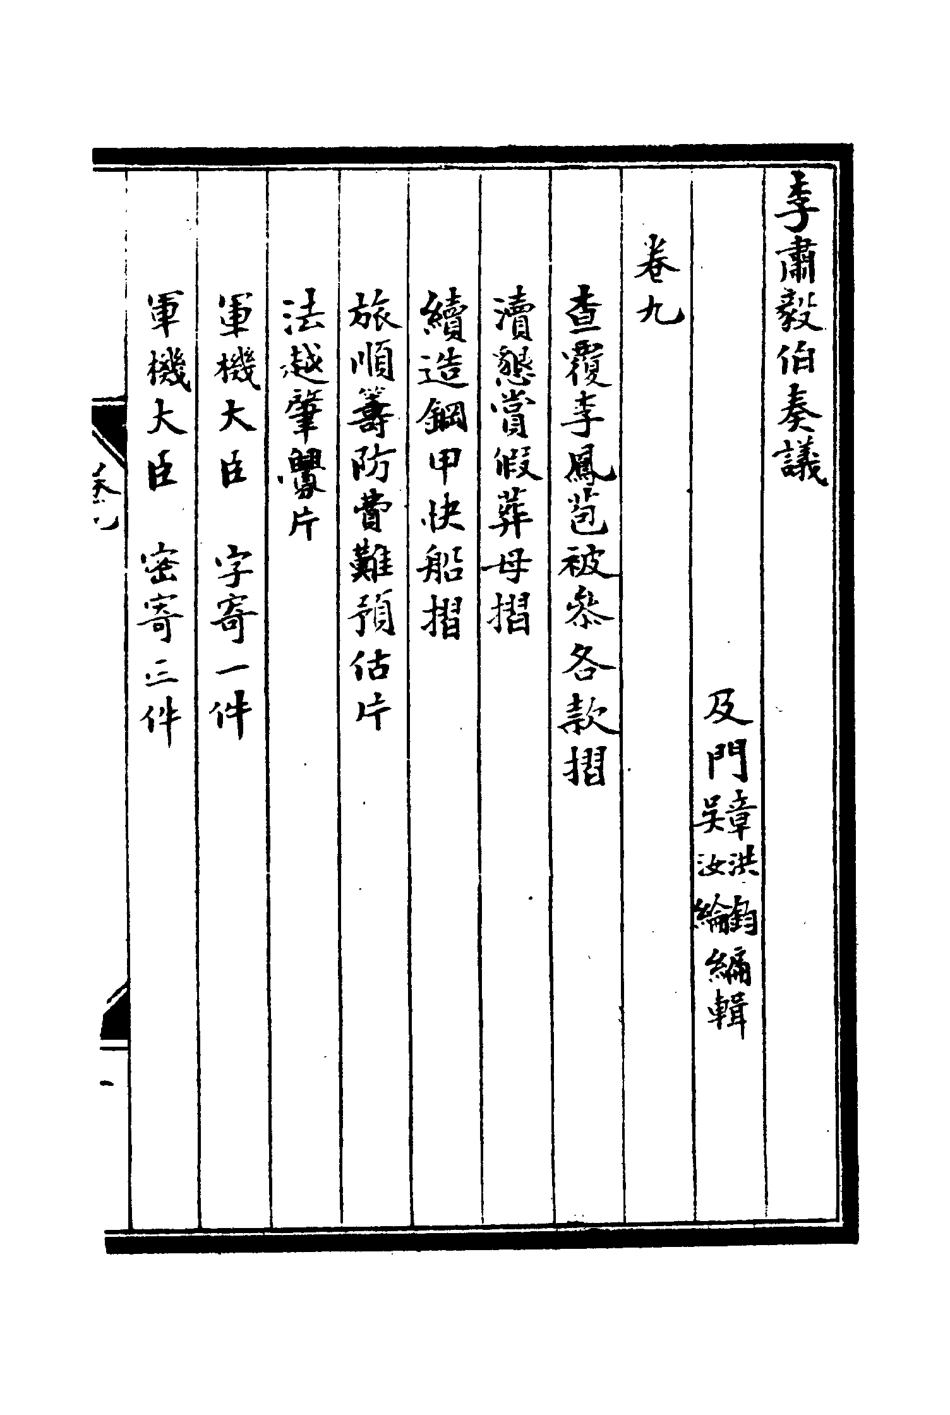 李肅毅伯奏議
及門章洪鈞吳汝綸編輯
卷九
查覆李鳳苞被叅各款摺
瀆懇賞假葬母摺
續造鋼甲快船摺
旅順籌防費難預估片
法越肇釁片
軍機大臣 字寄一件
軍機大臣 密寄三件
卷九
一